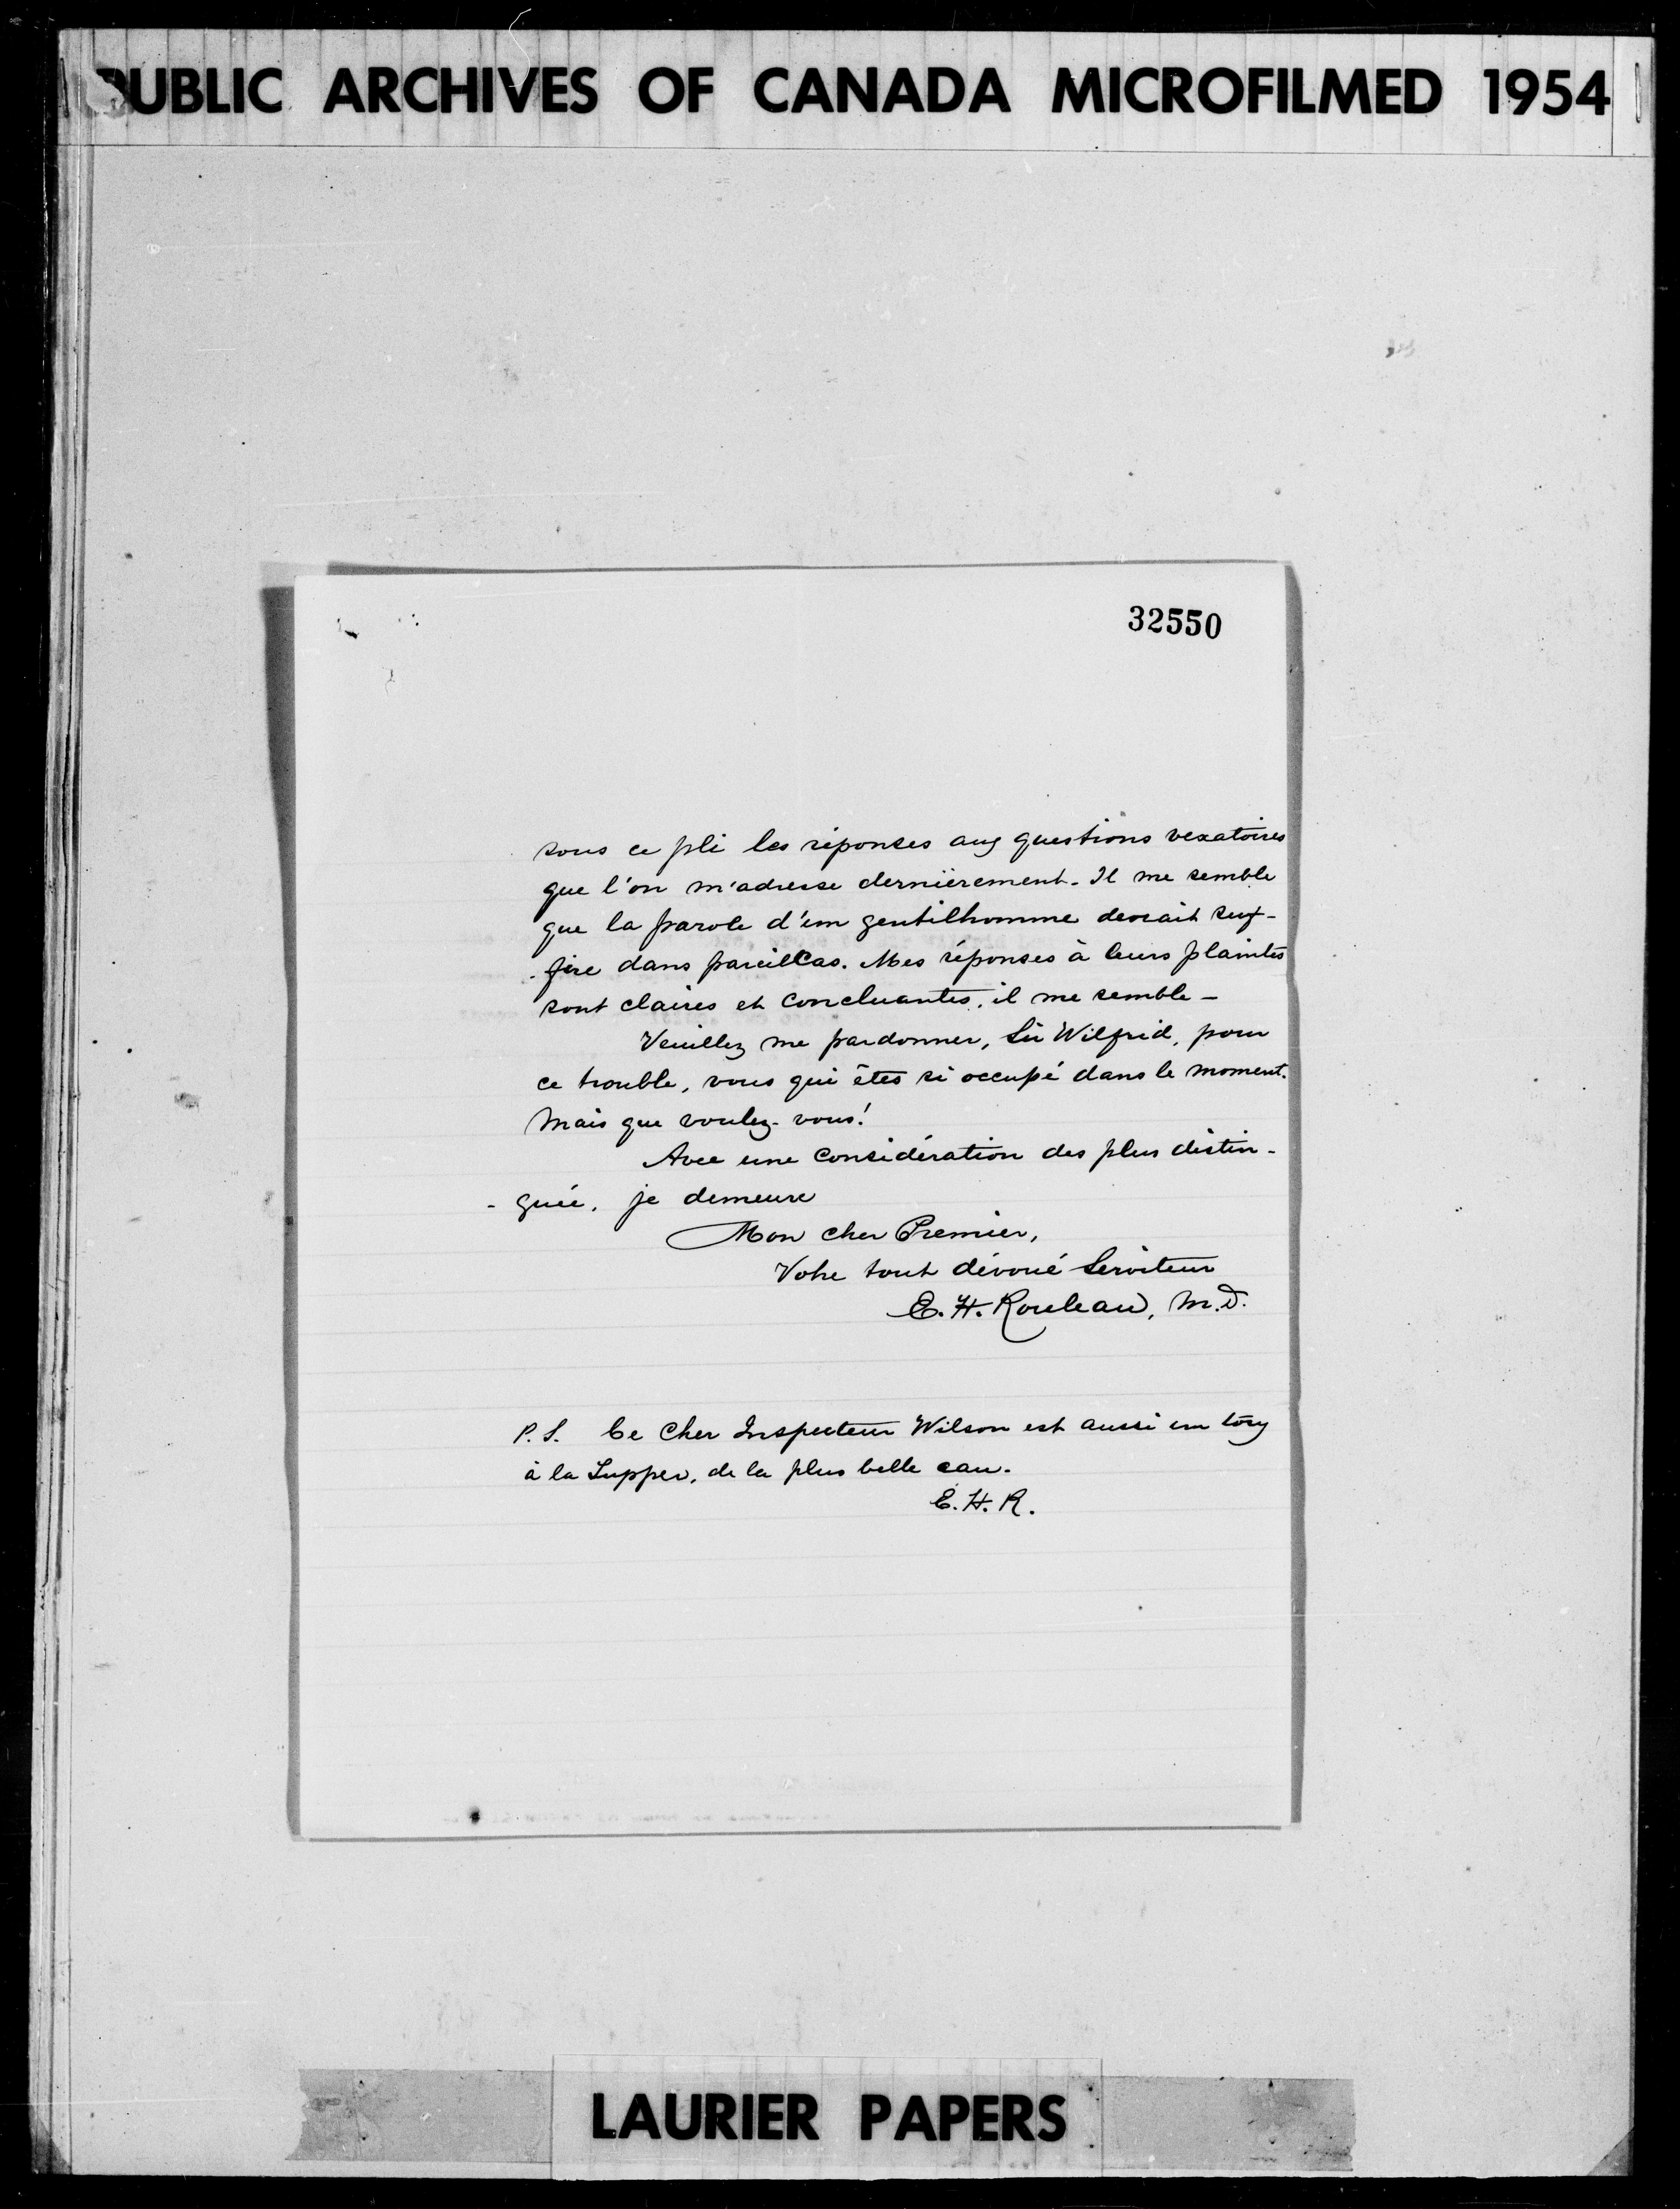 PUBLIC ARCHIVES OF CANADA MICROFILMED 1954
32550
sous ce pli les réponses aux questions vexatoires
que l'on m'adresse dernièrement. Il me semble
que la parole d'un gentilhomme devrait suf-
-fire dans pareil cas. Mes réponses à leurs plaintes
sont claires et concluantes, il me semble -
Veuillez me pardonner, Sir Wilfrid, pour
ce trouble, vous qui êtes si occupé dans le moment.
Mais que voulez-vous!
Avec une considération des plus distin-
-guée, je demeure
Mon cher Premier,
Votre tout dévoué Serviteur
E. H. Rouleau, M.D.
P.S. Ce cher Inspecteur Wilson est aussi un tory
à la Tupper, de la plus belle eau.
E. H. R.
LAURIER PAPERS